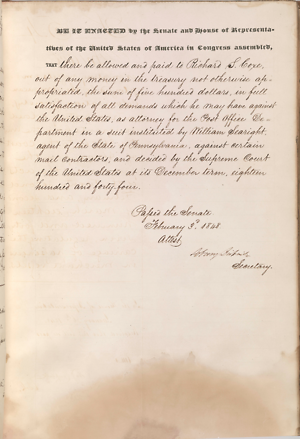 BE IT ENACTED by the Senate and House of Representa-
tives of the United States of America in Congress assembled,
THAT there be allowed and paid to Richard S. Coxe,
out of any money in the treasury not otherwise ap-
propriated, the sum of five hundred dollars, in full
satisfaction of all demands which he may have against
the United States, as attorney for the Post Office De-
partment in a suit instituted by William Searight,
agent of the State of Pennsylvania, against certain
mail contractors, and decided by the Supreme Court
of the United States at its December term, eighteen
hundred and forty-four.
Passed the Senate
February 3d, 1848.
Attest,
Secretary.